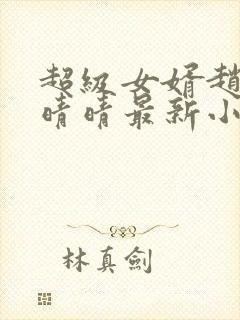 超級女婿趙
晴晴最新小
林真劍